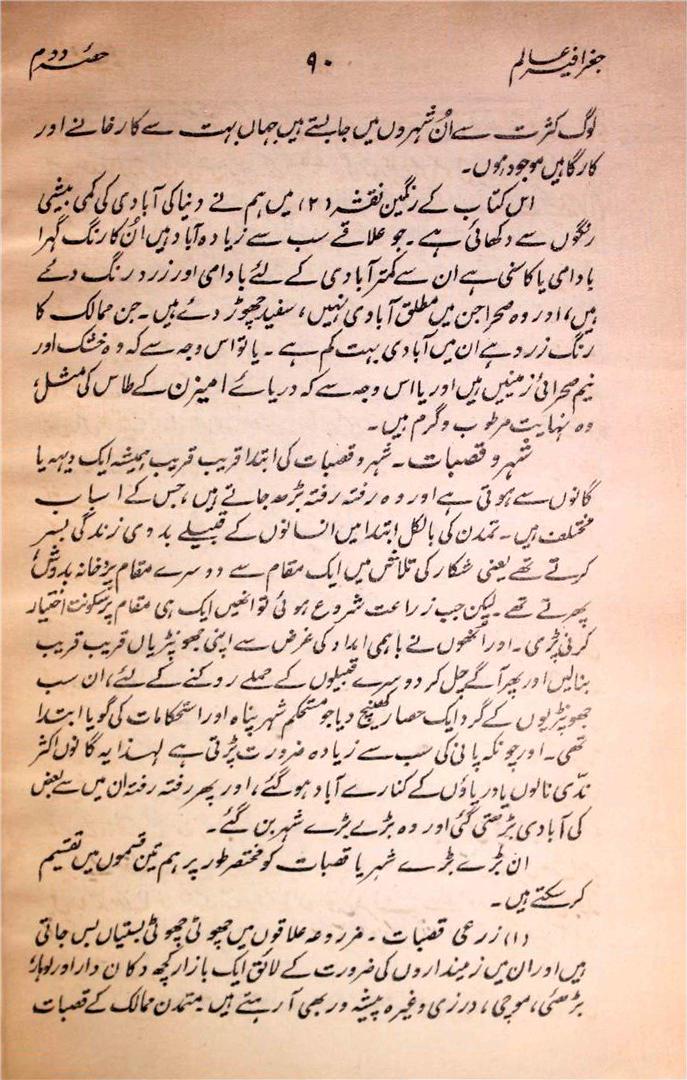 جغرافیہ عالم ۹۰ حصہ دوم
لوگ کثرت سے اُن شہروں میں جا بستے ہیں جہاں بہت سے کارخانے اور
کارگاہیں موجود ہوں۔
اس کتاب کے رنگین نقشہ (۲) میں ہم نے دنیا کی آبادی کی کمی بیشی
رنگوں سے دکھائی ہے۔ جو علاقے سب سے زیادہ آباد ہیں اُن کا رنگ گہرا
بادامی یا کاسنی ہے ان سے کمتر آبادی کے لئے بادامی اور زرد رنگ دئے
ہیں، اور وہ صحرا جن میں مطلق آبادی نہیں، سفید چھوڑ دئے ہیں۔ جن ممالک کا
رنگ زرد ہے ان میں آبادی بہت کم ہے۔ یا تو اس وجہ سے کہ وہ خشک اور
نیم صحرائی زمینیں ہیں اور یا اس وجہ سے کہ دریائے امیزن کے طاس کی مثل،
وہ نہایت مرطوب و گرم ہیں۔
شہر و قصبات۔ شہر و قصبات کی ابتدا قریب قریب ہمیشہ ایک دیہہ یا
گانوں سے ہوتی ہے اور وہ رفتہ رفتہ بڑھ جاتے ہیں، جس کے اسباب
مختلف ہیں۔ تمدن کی بالکل ابتدا میں انسانوں کے قبیلے بدوی زندگی بسر
کرتے تھے یعنی شکار کی تلاش میں ایک مقام سے دوسرے مقام پر خانہ بدوش
پھرتے تھے۔ لیکن جب زراعت شروع ہوئی تو انھیں ایک ہی مقام پر سکونت اختیار
کرنی پڑی۔ اور انھوں نے باہمی امداد کی غرض سے اپنی جھونپڑیاں قریب قریب
بنا لیں اور پھر آگے چل کر دوسرے قبیلوں کے حملے روکنے کے لئے، ان سب
جھونپڑیوں کے گرد ایک حصار کھینچ دیا جو مستحکم شہر پناہ اور استحکامات کی گویا ابتدا
تھی۔ اور چونکہ پانی کی سب سے زیادہ ضرورت پڑتی ہے لہذا یہ گانوں اکثر
ندّی نالوں یا دریاؤں کے کنارے آباد ہو گئے، اور پھر رفتہ رفتہ ان میں سے بعض
کی آبادی بڑھتی گئی اور وہ بڑے بڑے شہر بن گئے۔
ان بڑے بڑے شہر یا قصبات کو مختصر طور پر ہم تین قسموں میں تقسیم
کر سکتے ہیں۔
(۱) زرعی قصبات۔ مزروعہ علاقوں میں چھوٹی چھوٹی بستیاں بس جاتی
ہیں اور ان میں زمینداروں کی ضرورت کے لائق ایک بازار کچھ دکان دار اور لوہار،
بڑھئی، موچی، درزی وغیرہ پیشہ ور بھی آ رہتے ہیں۔ متمدن ممالک کے قصبات